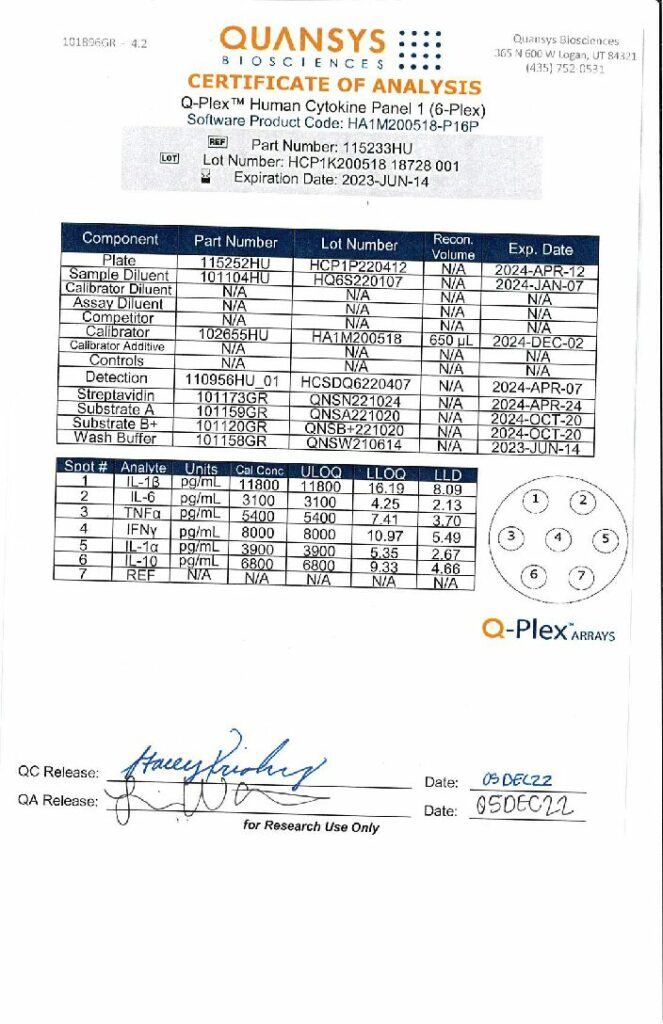 101896GR - 4.2
QUANSYS
BIOSCIENCES
Quansys Biosciences
365 N 600 W Logan, UT 84321
(435) 752-0531
CERTIFICATE OF ANALYSIS
Q-Plex™ Human Cytokine Panel 1 (6-Plex)
Software Product Code: HA1M200518-P16P
REF Part Number: 115233HU
LOT Lot Number: HCP1K200518 18728 001
Expiration Date: 2023-JUN-14
Component Part Number Lot Number Recon. Volume Exp. Date
Plate 115252HU HCP1P220412 N/A 2024-APR-12
Sample Diluent 101104HU HQ6S220107 N/A 2024-JAN-07
Calibrator Diluent N/A N/A N/A N/A
Assay Diluent N/A N/A N/A N/A
Competitor N/A N/A N/A N/A
Calibrator 102655HU HA1M200518 650 µL 2024-DEC-02
Calibrator Additive N/A N/A N/A N/A
Controls N/A N/A N/A N/A
Detection 110956HU_01 HCSDQ6220407 N/A 2024-APR-07
Streptavidin 101173GR QNSN221024 N/A 2024-APR-24
Substrate A 101159GR QNSA221020 N/A 2024-OCT-20
Substrate B+ 101120GR QNSB+221020 N/A 2024-OCT-20
Wash Buffer 101158GR QNSW210614 N/A 2023-JUN-14
Spot # Analyte Units Cal Conc ULOQ LLOQ LLD
1 IL-1β pg/mL 11800 11800 16.19 8.09
2 IL-6 pg/mL 3100 3100 4.25 2.13
3 TNFα pg/mL 5400 5400 7.41 3.70
4 IFNγ pg/mL 8000 8000 10.97 5.49
5 IL-1α pg/mL 3900 3900 5.35 2.67
6 IL-10 pg/mL 6800 6800 9.33 4.66
7 REF N/A N/A N/A N/A N/A
1 2
3 4 5
6 7
Q-Plex™ ARRAYS
QC Release: Date: 05DEC22
QA Release: Date: 05DEC22
for Research Use Only